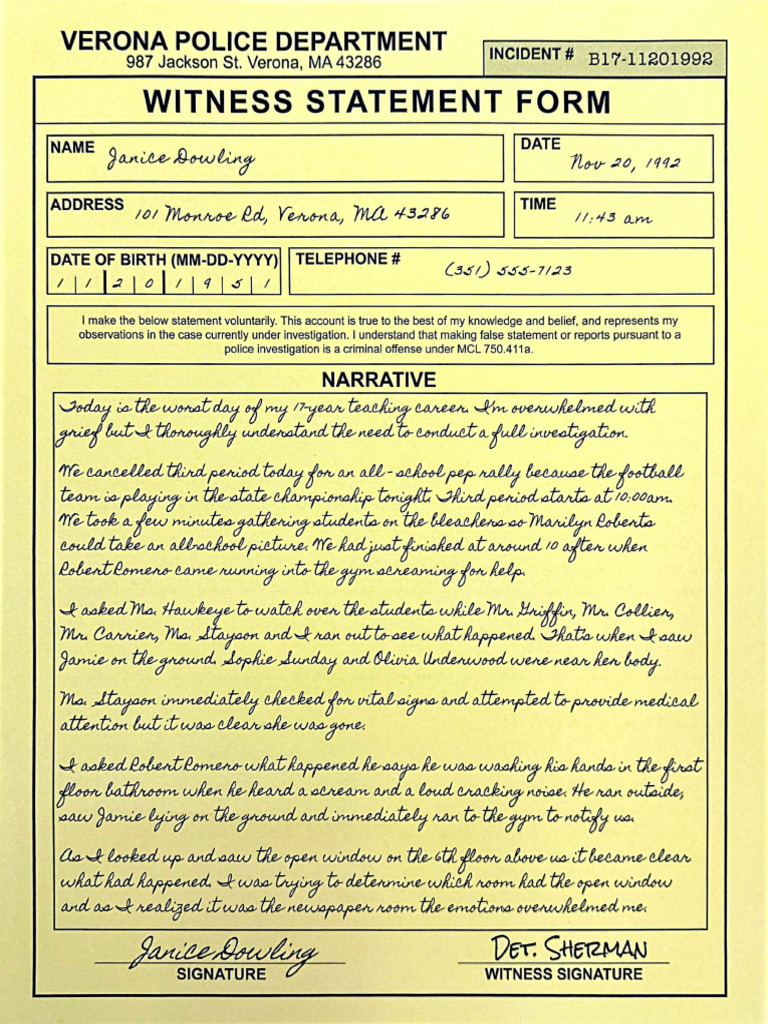 VERONA POLICE DEPARTMENT
987 Jackson St. Verona, MA 43286
INCIDENT # B17-11201992
WITNESS STATEMENT FORM
NAME Janice Dowling
DATE Nov 20, 1992
ADDRESS 101 Monroe Rd, Verona, MA 43286
TIME 11:43 am
DATE OF BIRTH (MM-DD-YYYY) 1 1 2 0 1 9 5 1
TELEPHONE # (351) 555-7123
I make the below statement voluntarily. This account is true to the best of my knowledge and belief, and represents my
observations in the case currently under investigation. I understand that making false statement or reports pursuant to a
police investigation is a criminal offense under MCL 750.411a.
NARRATIVE
Today is the worst day of my 17-year teaching career. I'm overwhelmed with
grief but I thoroughly understand the need to conduct a full investigation.
We cancelled third period today for an all-school pep rally because the football
team is playing in the state championship tonight. Third period starts at 10:00am.
We took a few minutes gathering students on the bleachers so Marilyn Roberts
could take an all-school picture. We had just finished at around 10 after when
Robert Romero came running into the gym screaming for help.
I asked Ms. Hawkeye to watch over the students while Mr. Griffin, Mr. Collier,
Mr. Carrier, Ms. Stayson and I ran out to see what happened. That's when I saw
Jamie on the ground. Sophie Sunday and Olivia Underwood were near her body.
Ms. Stayson immediately checked for vital signs and attempted to provide medical
attention but it was clear she was gone.
I asked Robert Romero what happened he says he was washing his hands in the first
floor bathroom when he heard a scream and a loud cracking noise. He ran outside,
saw Jamie lying on the ground and immediately ran to the gym to notify us.
As I looked up and saw the open window on the 6th floor above us it became clear
what had happened. I was trying to determine which room had the open window
and as I realized it was the newspaper room the emotions overwhelmed me.
Janice Dowling
SIGNATURE
DET. SHERMAN
WITNESS SIGNATURE